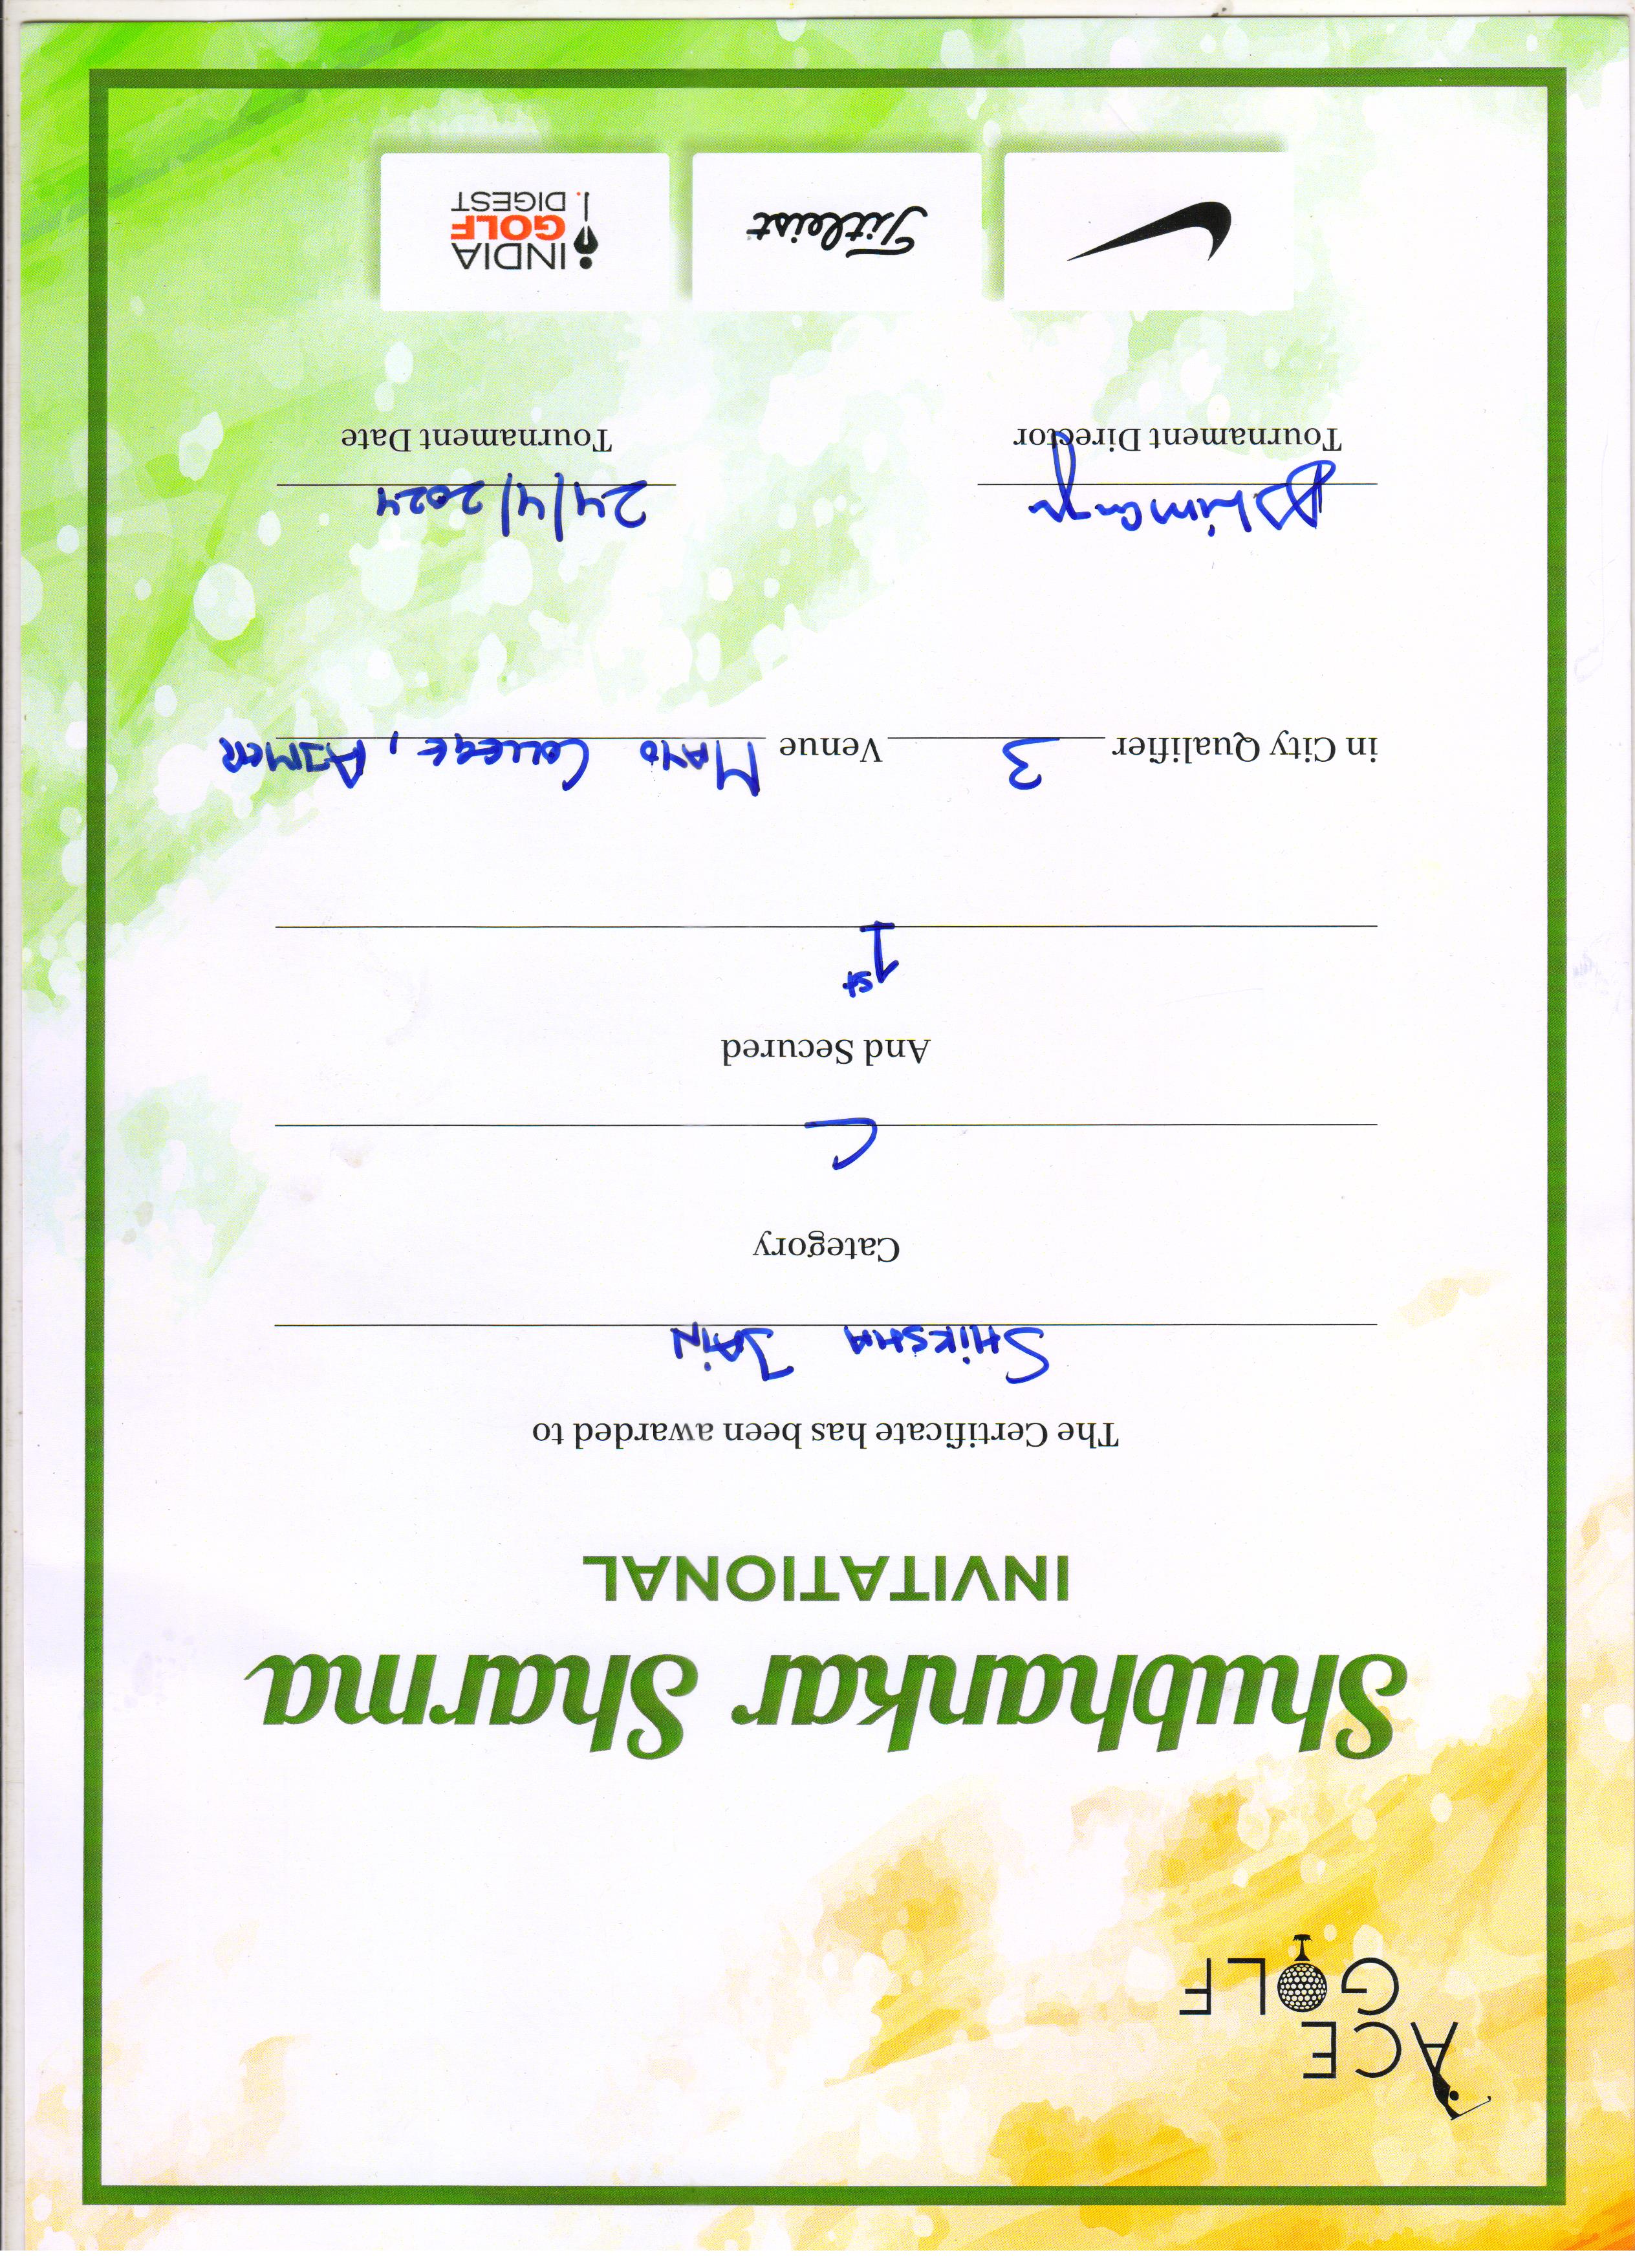 ACE
GOLF
Shubhankar Sharma
INVITATIONAL
The Certificate has been awarded to
SHIKSHA JAIN
Category
C
And Secured
1st
in City Qualifier 3 Venue MAYO COLLEGE, AJMER
24/4/2024
Tournament Director Tournament Date
Titleist
INDIA
GOLF
DIGEST